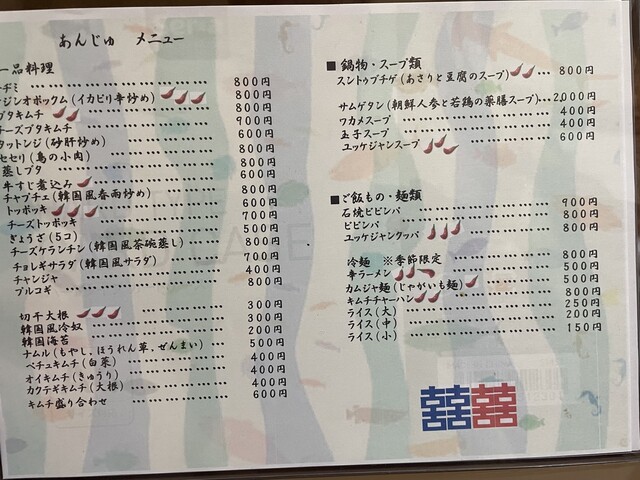 あんじゅ メニュー
一品料理
チヂミ ………… 800円
オジンオボックム(イカピリ辛炒め) 800円
ブタキムチ ………… 800円
チーズブタキムチ ………… 900円
タットンジ(砂肝炒め) ………… 600円
セセリ(鳥の小肉) ………… 800円
蒸しブタ ………… 600円
牛すじ煮込み ………… 800円
チャプチェ(韓国風春雨炒め) ………… 600円
トッポッキ ………… 600円
チーズトッポッキ ………… 700円
ぎょうざ(5コ) ………… 500円
チーズケランチン(韓国風茶碗蒸し) ………… 800円
チョレギサラダ(韓国風サラダ) ………… 700円
チャンジャ ………… 400円
プルコギ ………… 800円
切干大根 ………… 300円
韓国風冷奴 ………… 300円
韓国海苔 ………… 200円
ナムル(もやし,ほうれん草,ぜんまい) ………… 500円
ペチュキムチ(白菜) ………… 400円
オイキムチ(きゅうり) ………… 400円
カクテギキムチ(大根) ………… 400円
キムチ盛り合わせ ………… 600円
■ 鍋物・スープ類
スントゥブチゲ(あさりと豆腐のスープ) … 800円
サムゲタン(朝鮮人参と若鶏の薬膳スープ)… 2,000円
ワカメスープ ………… 400円
玉子スープ ………… 400円
ユッケジャンスープ ………… 600円
■ ご飯もの・麺類
石焼ビビンバ ………… 900円
ビビンバ ………… 800円
ユッケジャンクッパ ………… 800円
冷麺 ※季節限定 ………… 800円
辛ラーメン ………… 500円
カムジャ麺(じゃがいも麺) ………… 500円
キムチチャーハン ………… 800円
ライス(大) ………… 250円
ライス(中) ………… 200円
ライス(小) ………… 150円
囍囍